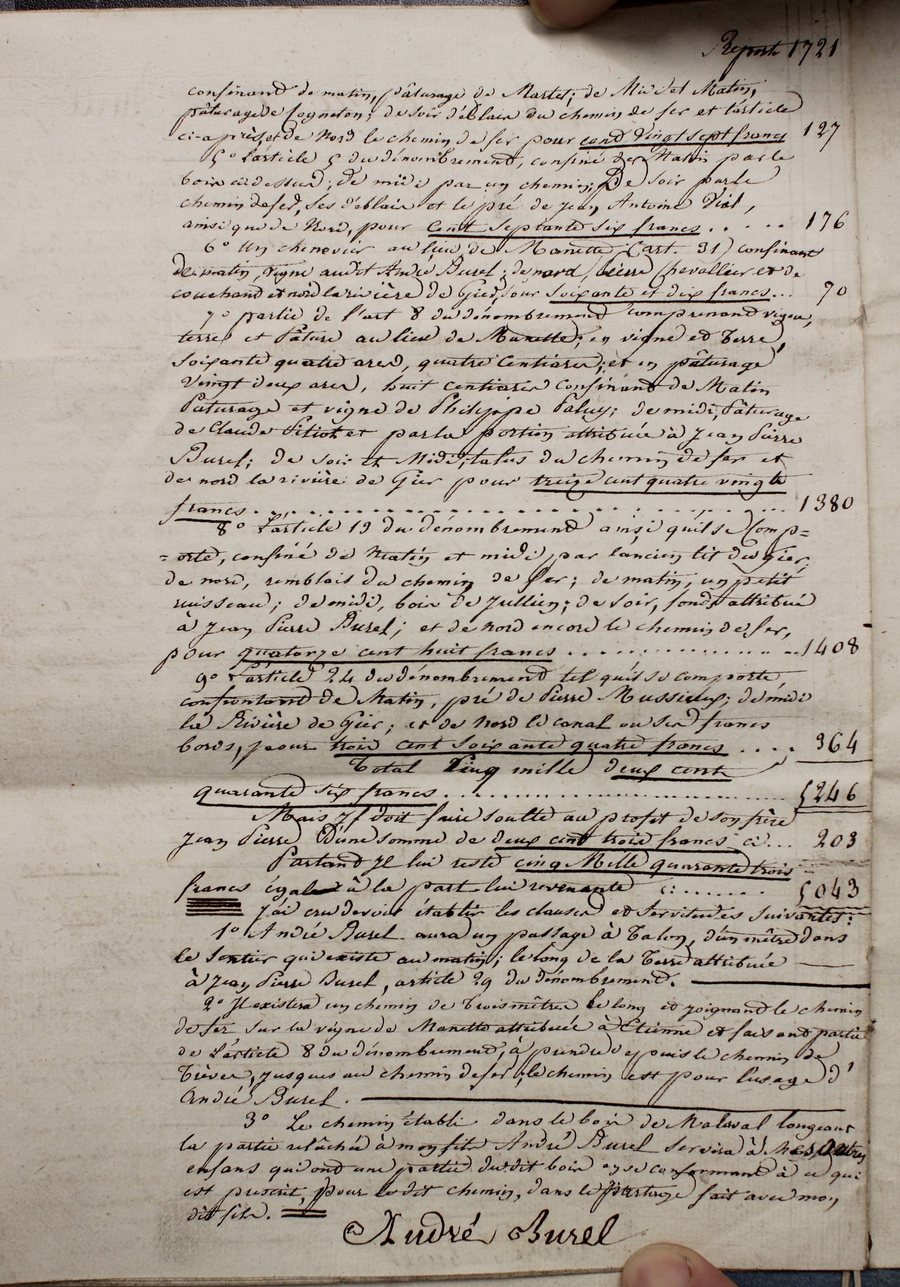 Report 1721
confinand de matin, pâturage de Martel; de Midi et Matin,
pâturage de Cogneton; de soir déblais du chemin de fer et l'article
ci-après, et de Nord le chemin de fer pour cend vingt sept francs 127
5° L'article 5 du dénombrement, confiné de Matin par le
bois ci dessus; de midi par un chemin; De soir par le
chemin de fer, ses déblais et le pré de Jean Antoine Vial,
ainsi que de Nord, pour Cent Septante six francs ..... 176
6° Un chenevier au lieu de Manette (art. 31) confinant
de matin, vigne audit André Burel; de nord, Chevallier et de
couchand et nord la rivière de Gier, pour soixante et dix francs... 70
7° partie de l'art 8 du dénombrement comprenand vigne,
terre et Pâture au lieu de Manette; en vigne et Terre,
soixante quatre ares, quatre Centiares; et en pâturage
Vingt deux ares, huit centiares confinand de Matin
Pâturage et vigne de Philippe Paluy; de midi, Pâturage
de Claude Pitiot et par la portion attribuée à Jean Pierre
Burel; de soir et Midi, talus du chemin de fer et
de nord la rivière de Gier pour treize cent quatre vingts
francs ........ 1380
8° L'article 19 du dénombrement ainsi qu'il se Comp=
=orte, confiné de Matin et midi par l'ancien lit du Gier,
de nord, remblais du chemin de fer; de matin, un petit
ruisseau; de midi, bois de Jullien; de soir, fonds attribué
à Jean Pierre Burel; et de nord encore le chemin de fer,
pour quatorze cent huit francs ........ 1408
9° L'article 24 du dénombrement tel qu'il se comporte,
confrontand de Matin, pré de Pierre Mussieux; de midi
la Rivière de Gier; et de Nord le canal ou ses francs
bords, pour trois cent soixante quatre francs .... 364
Total Cinq mille deux cent
quarante six francs ........ 5246
Mais Il doit faire soulte au profit de son frère
Jean Pierre D'une somme de deux cent trois francs ci... 203
Partand Il lui reste cinq Mille quarante trois
francs égale à la part lui revenante ci ....... 5043
J'ai cru devoir établir les clauses et servitudes suivantes:
1° André Burel aura un passage à Talon, d'un mêtre dans
le Sentier qui existe au matin; le long de la Terre attribuée
à Jean Pierre Burel, article 29 du dénombrement.
2° Il existera un chemin de Trois mêtres le long et joignand le chemin
de fer sur la vigne de Manette attribuée à Etienne et faisand partie
de L'article 8 du dénombrement, à prendre depuis le chemin de
Trèves, jusques au chemin de fer, le chemin est pour l'usage d'
André Burel.
3° Le chemin établi dans le bois de Malaval longeant
la partie relâchée à mon fils André Burel servira à Mes autres
enfans qui ond une partie du dit bois en se conformand à ce qui
est prescrit, pour le dit chemin, dans le partage fait avec mon
dit fils.
André Burel